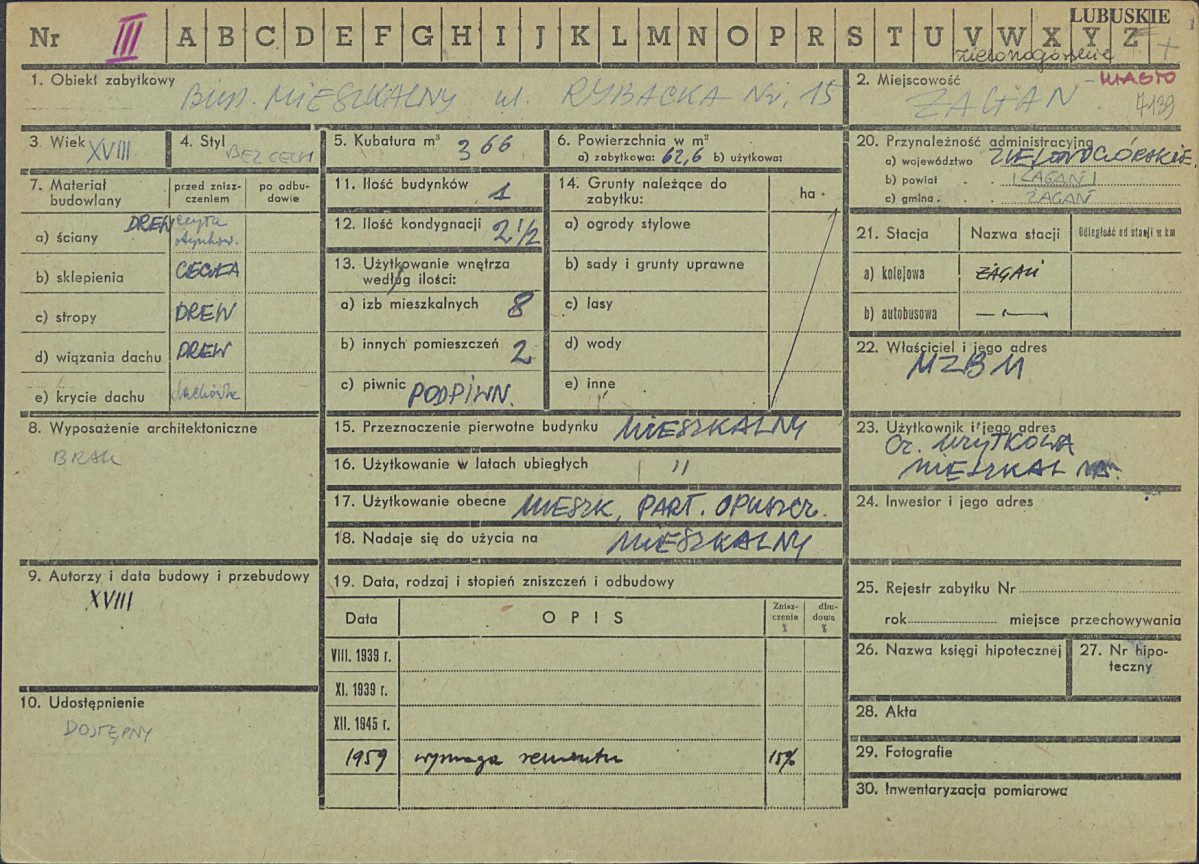 LUBUSKIE
Nr III A B C D E F G H I J K L M N O P R S T U V W X Y Z
zielonogórskie
1. Obiekt zabytkowy
BUD. MIESZKALNY ul. RYBACKA Nr. 15
2. Miejscowość - MIASTO
ŻAGAŃ 7139
3. Wiek XVIII
4. Styl BEZ CECH
5. Kubatura m³ 366
6. Powierzchnia w m²
a) zabytkowa: 62,6 b) użytkowa:
7. Materiał budowlany
przed zniszczeniem
po odbudowie
a) ściany DREW cegła otynkow.
b) sklepienia CEGŁA
c) stropy DREW
d) wiązania dachu DREW
e) krycie dachu dachówka
8. Wyposażenie architektoniczne
BRAK
9. Autorzy i data budowy i przebudowy
XVIII
10. Udostępnienie
DOSTĘPNY
11. Ilość budynków 1
12. Ilość kondygnacji 2 1/2
13. Użytkowanie wnętrza
według ilości:
a) izb mieszkalnych 8
b) innych pomieszczeń 2
c) piwnic PODPIWN.
14. Grunty należące do
zabytku:
ha
a) ogrody stylowe
b) sady i grunty uprawne
c) lasy
d) wody
e) inne
15. Przeznaczenie pierwotne budynku MIESZKALNY
16. Użytkowanie w latach ubiegłych "
17. Użytkowanie obecne MIESZK, PART. OPUSZCZ.
18. Nadaje się do użycia na MIESZKALNY
19. Data, rodzaj i stopień zniszczeń i odbudowy
Data OPIS Zniszczenia % dbudowa %
VIII. 1939 r.
XI. 1939 r.
XII. 1945 r.
1959 wymaga remontu 15%
20. Przynależność administracyjna
a) województwo ZIELONOGÓRSKIE.
b) powiat ŻAGAŃ
c) gmina ŻAGAŃ
21. Stacja Nazwa stacji Odległość od stacji w km
a) kolejowa ŻAGAŃ
b) autobusowa —
22. Właściciel i jego adres
MZBM
23. Użytkownik i jego adres
Cz. UŻYTKOWA
24. Inwestor i jego adres
25. Rejestr zabytku Nr
rok miejsce przechowywania
26. Nazwa księgi hipotecznej
27. Nr hipoteczny
28. Akta
29. Fotografie
30. Inwentaryzacja pomiarowa